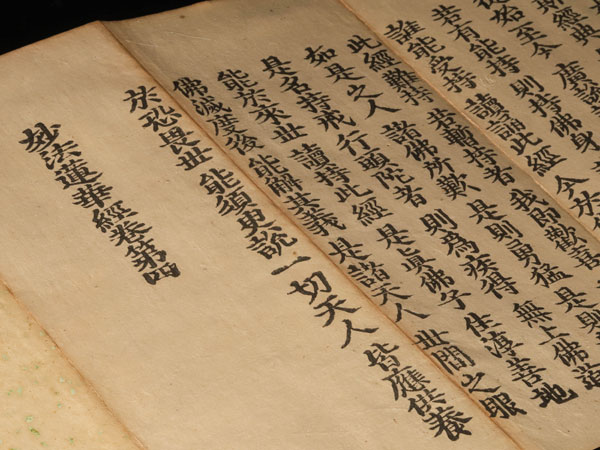 從始至今 廣說
若有能持 則持佛身
誰能受持 讀誦此經 今於
此經難持 若暫持者 我即歡喜
如是之人 諸佛所歎 是則勇猛 是則
是名持戒 行頭陀者 則為疾得 無上佛道
能於來世 讀持此經 是真佛子 住淳善地
佛滅度後 能解其義 是諸天人 世間之眼
於恐畏世 能須臾說 一切天人 皆應供養
妙法蓮華經卷第四